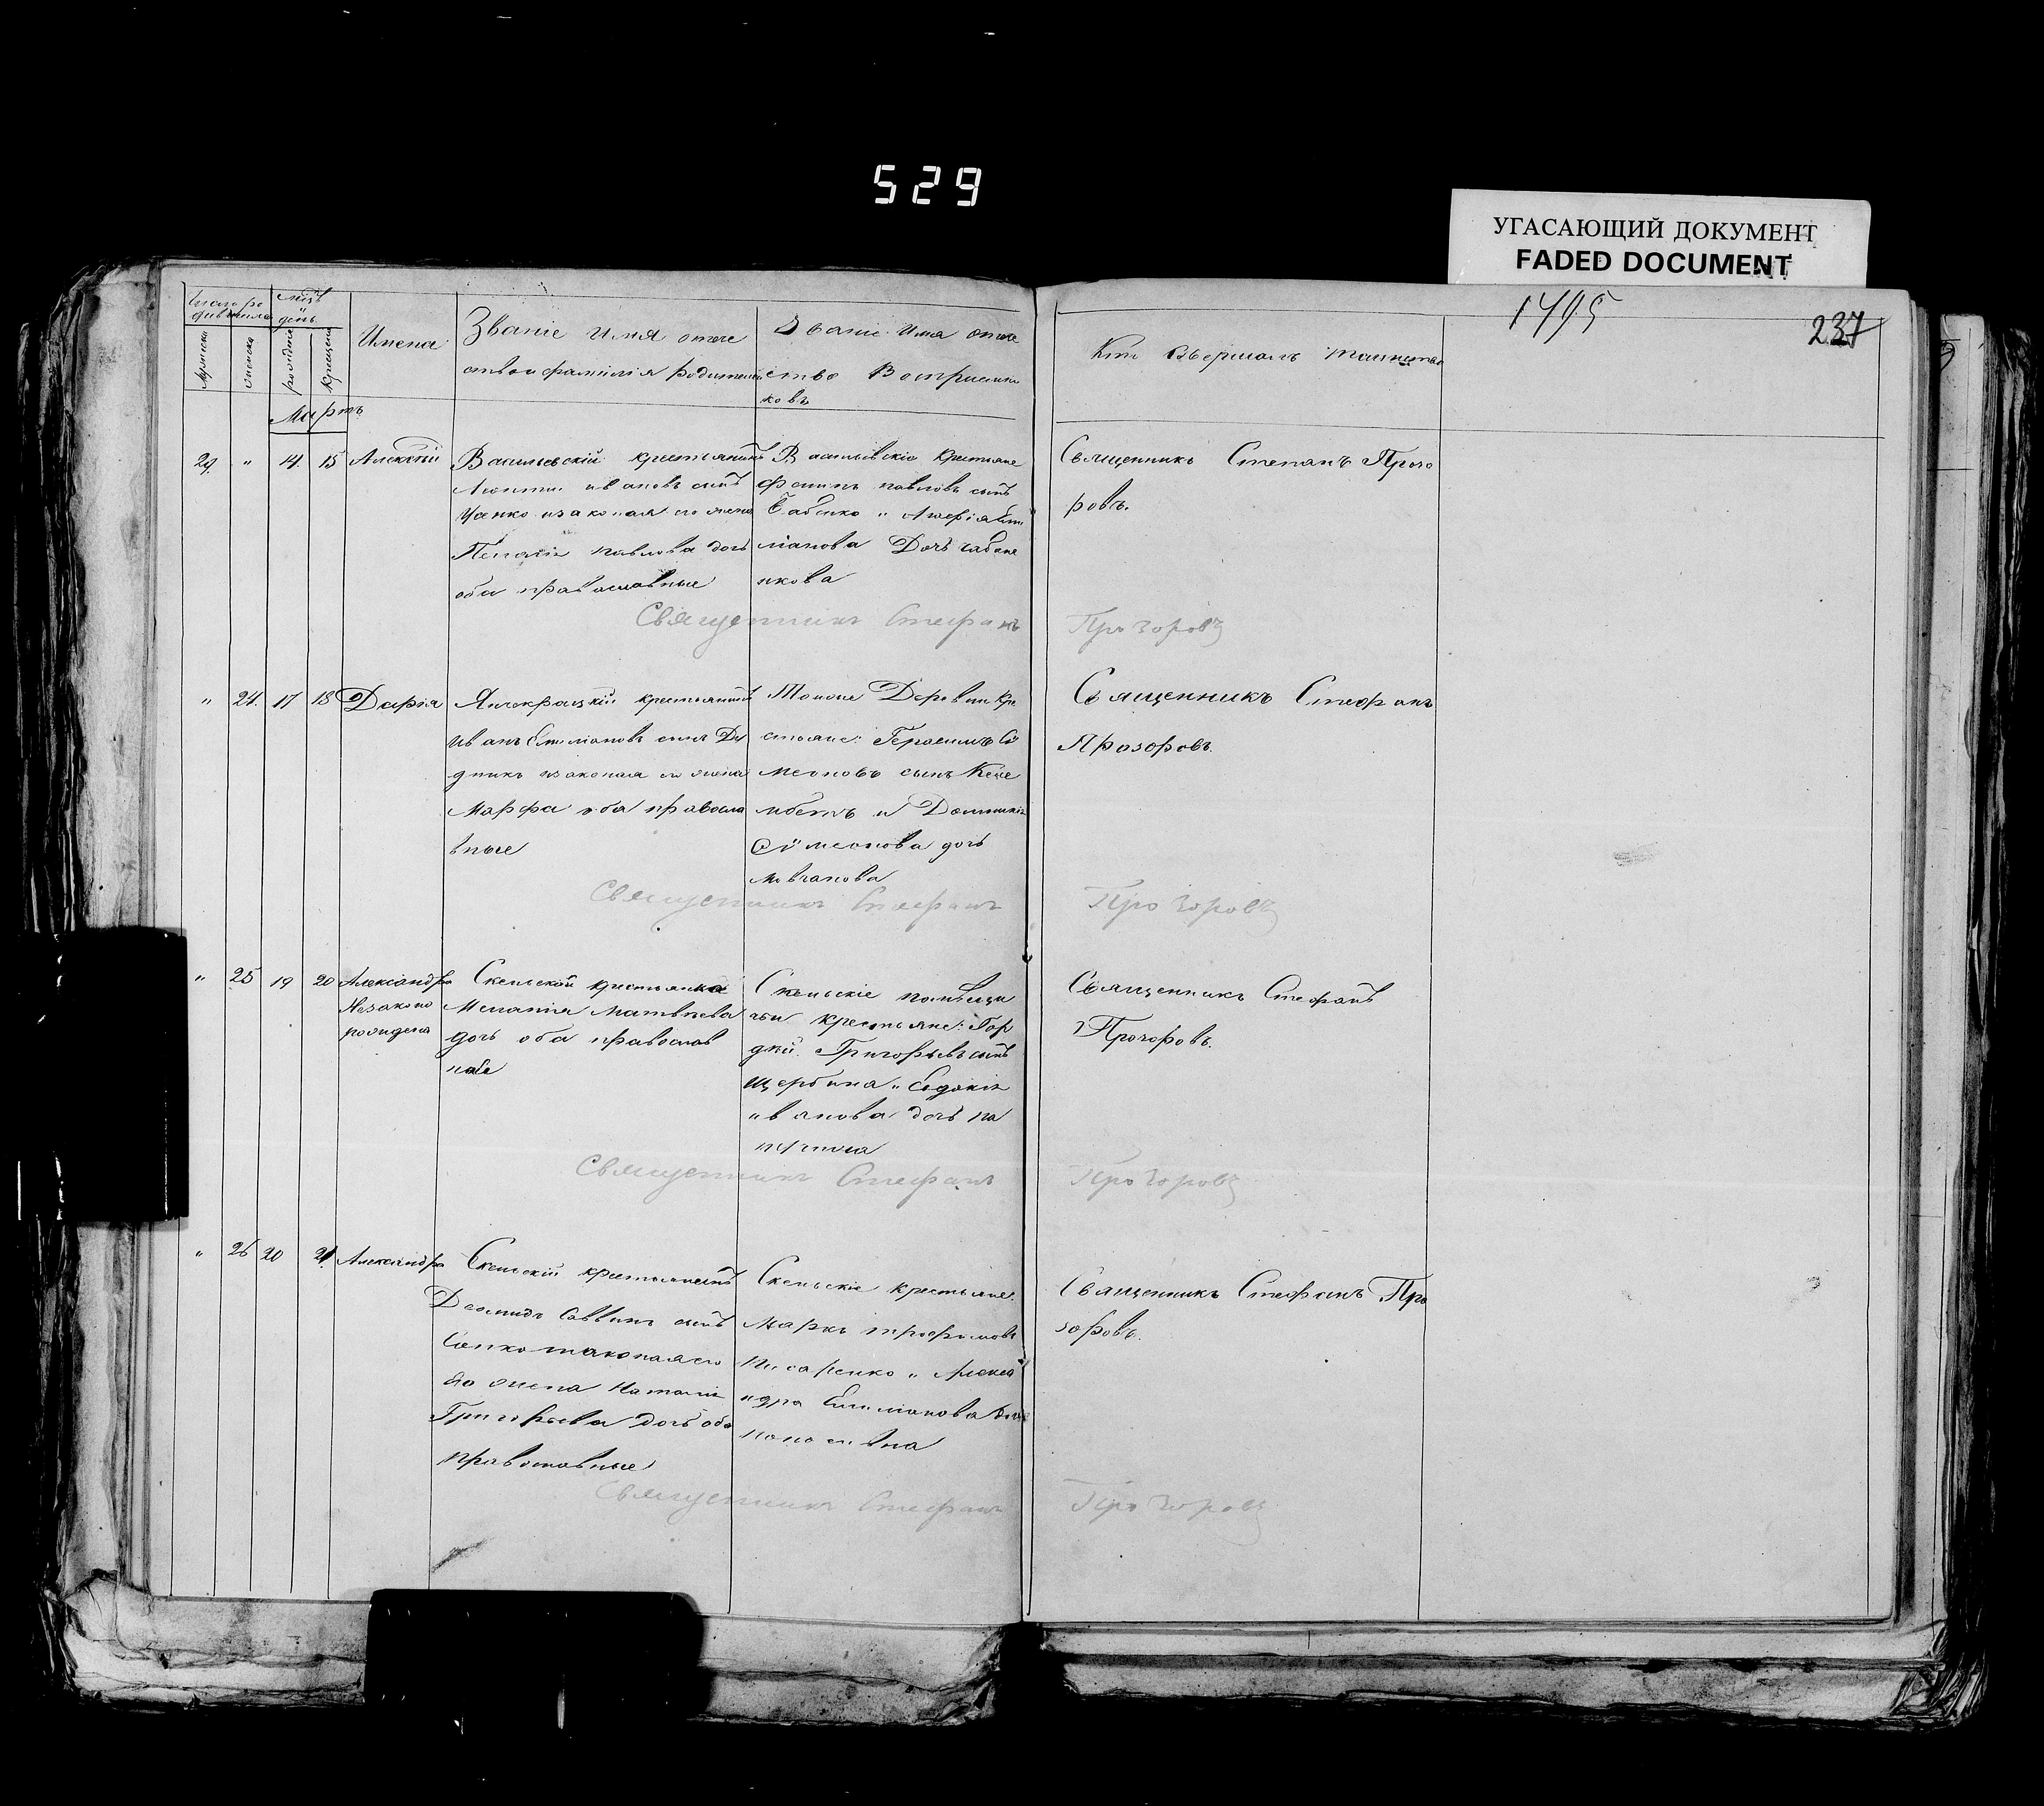 529
УГАСАЮЩИЙ ДОКУМЕНТ
FADED DOCUMENT
1495
237
Мѣсъ
день
Мужеска
женска
рождения
Крещения
Имена
Званіе Имя отче
ство и фамилія родителей
Званіе Имя отче
ство Восприемни
ковъ
Кто Совершалъ таинство
Мартъ
29 " 14 15 Алексѣй
Васильевскій крестьянинъ
Леонтий ивановъ сынъ
Цапко изаконая его жена
Пелагія павлова дочь
оба православные
Васильевскіе Крестьяне
павловъ сынъ
Бабенко
Дочь
нкова
Священникъ Степанъ Прозо
ровъ.
Священникъ Стефанъ Прозоровъ
" 24. 17 18 Дарія
крестьянинъ
Иванъ Емелиановъ сынъ
дникъ изаконая его жена
Марфа оба правосла
вные
Тойже Деревни кре
стьяне: Герасимъ Си
меоновъ сынъ
и Домникія
Симеонова дочь
Мовчанова
Священникъ Стефанъ
Прозоровъ.
Священникъ Стефанъ Прозоровъ
" 25 19 20 Александра
Незаконо
рожденa
Скельской крестьянка
Мелания Матвѣева
дочь оба православ
ные
Скельскіе помѣщи
чьи крестьяне: Гор
дѣй Григорьевъ сынъ
Щербина " Евдокія
ивanова дочь
Священникъ Стефанъ
Прозоровъ.
Священникъ Стефанъ Прозоровъ
" 26 20 21 Александра
Скельскій крестьянинъ
Деомидъ Саввинъ сынъ
жена Наталія
Григорьева дочь оба
православные
Скельскіе крестьяне:
Маркъ трофимовъ
Писаренко " Алекса
ндра Емелианова дочь
Священникъ Стефанъ Про
зоровъ.
Священникъ Стефанъ Прозоровъ